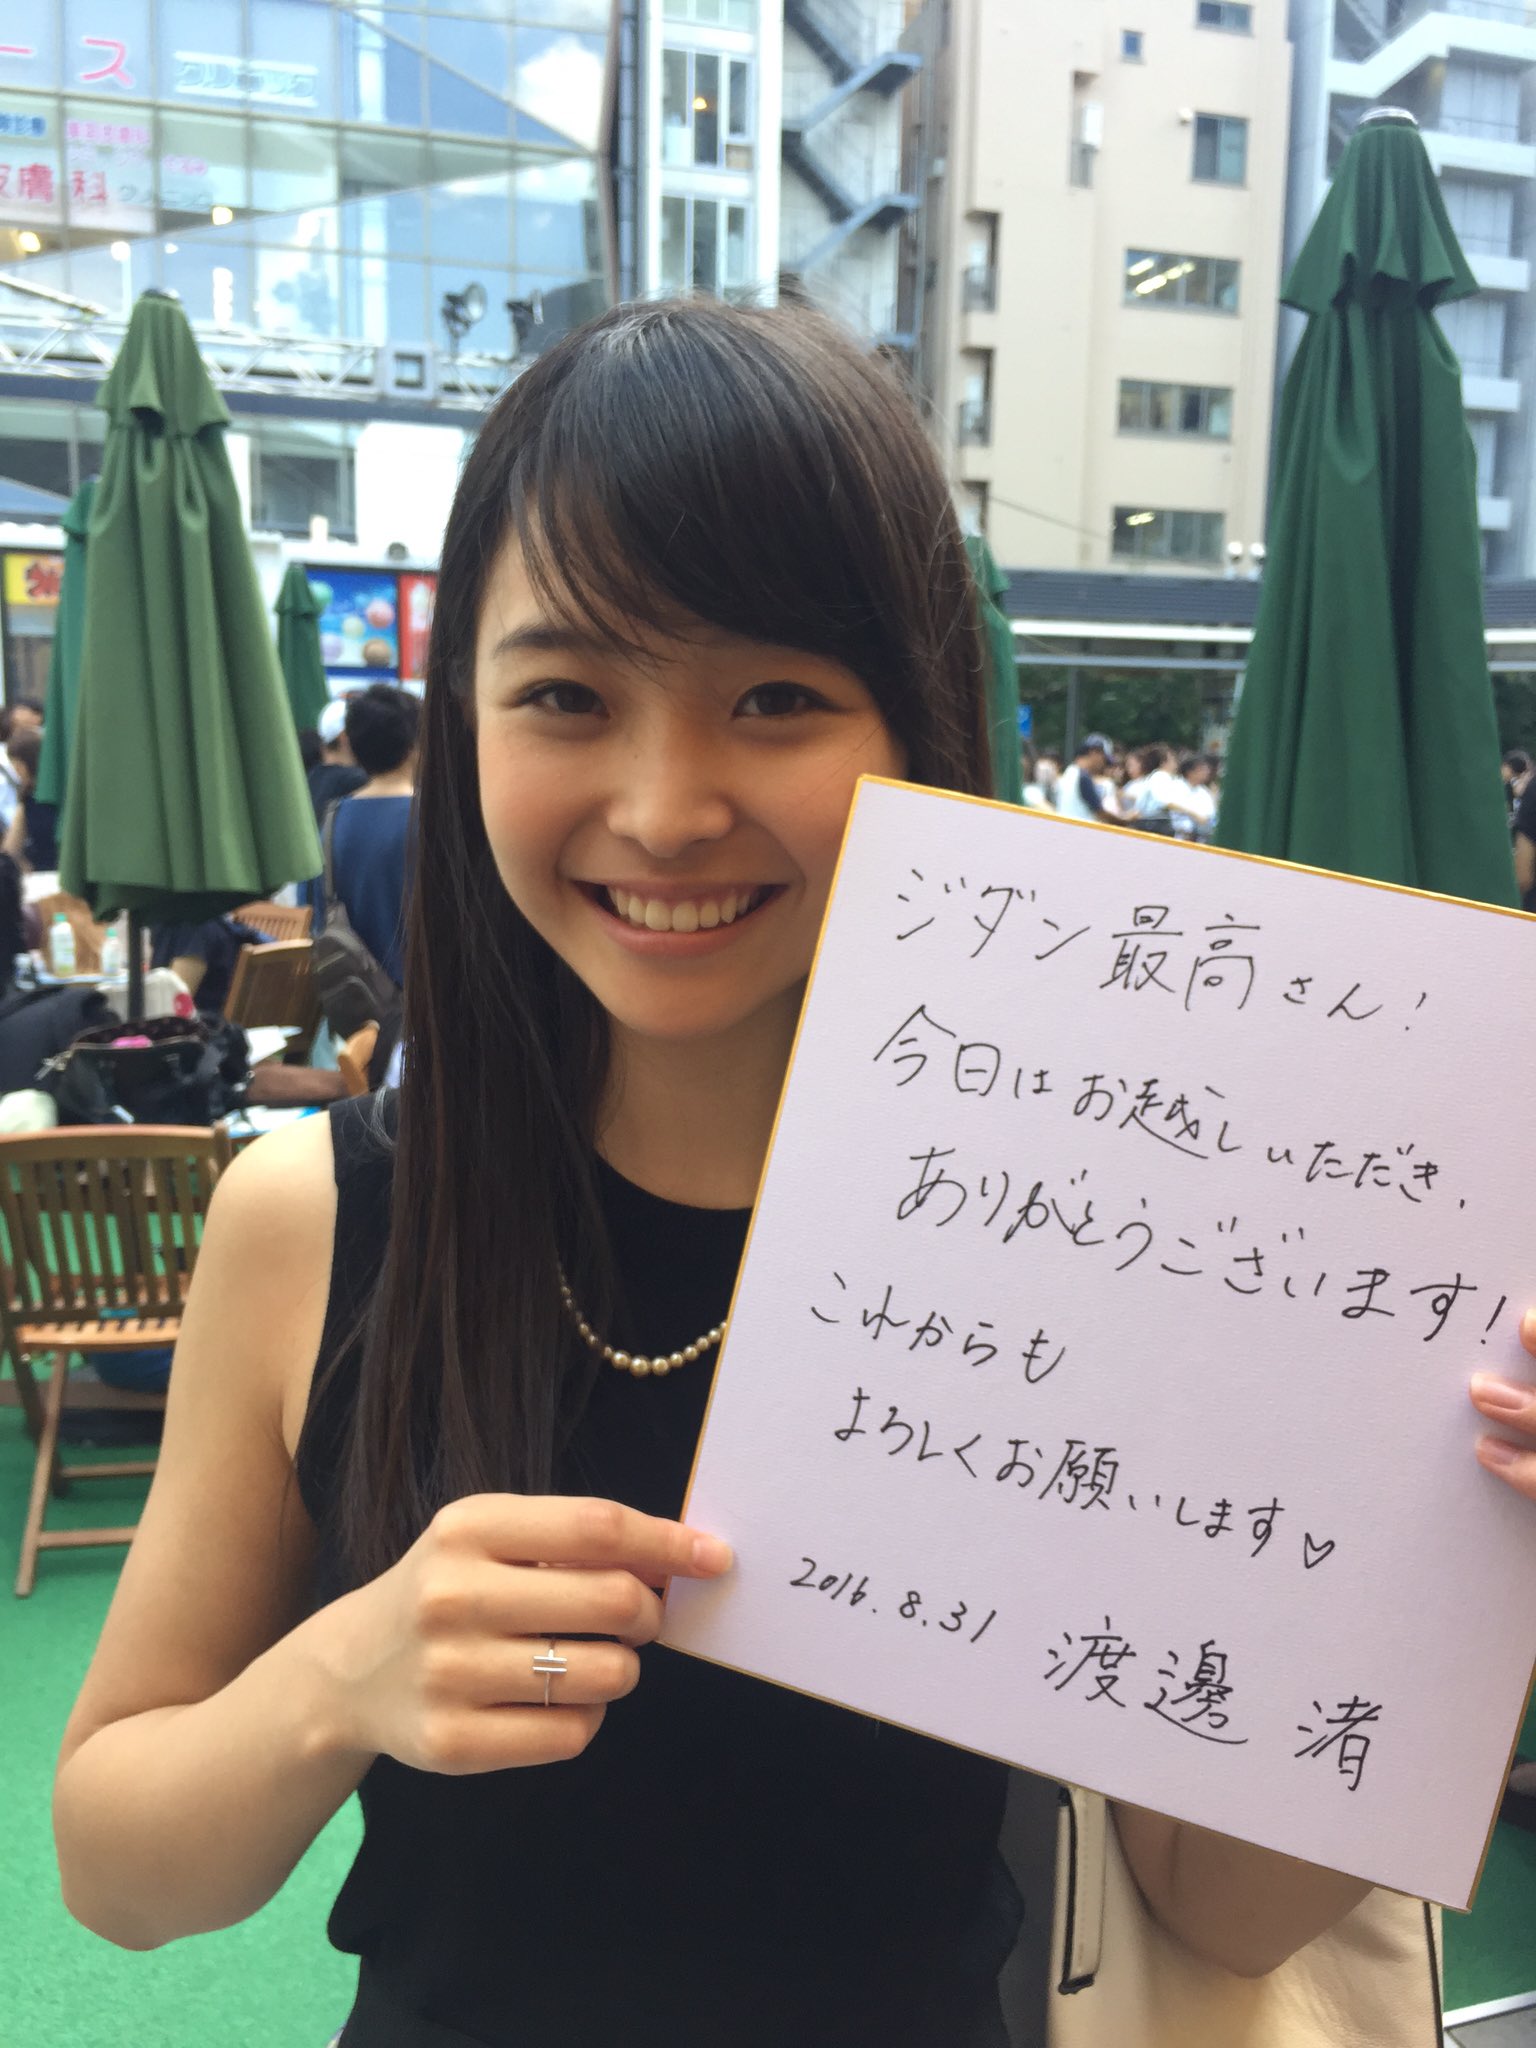 ース
グルモニック
皮膚科 クリニック
ジダン最高さん!
今日はお越しいただき、
ありがとうございます!
これからも
よろしくお願いします♡
2016.8.31 渡邊 渚